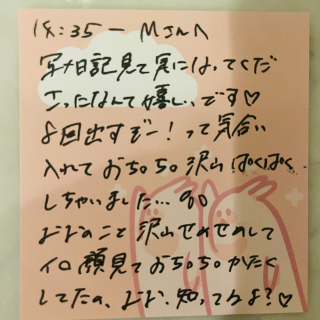 18:35 − Mさんへ
写メ日記見て実にはってくだ
さったなんて嬉しいです♡
8回出すぞー!って気合い
入れておちち沢山ぱくぱく
しちゃいました…
のこと沢山せめせめして
イロ顔見ておちちかたく
してたの、、知ってるよ?♡